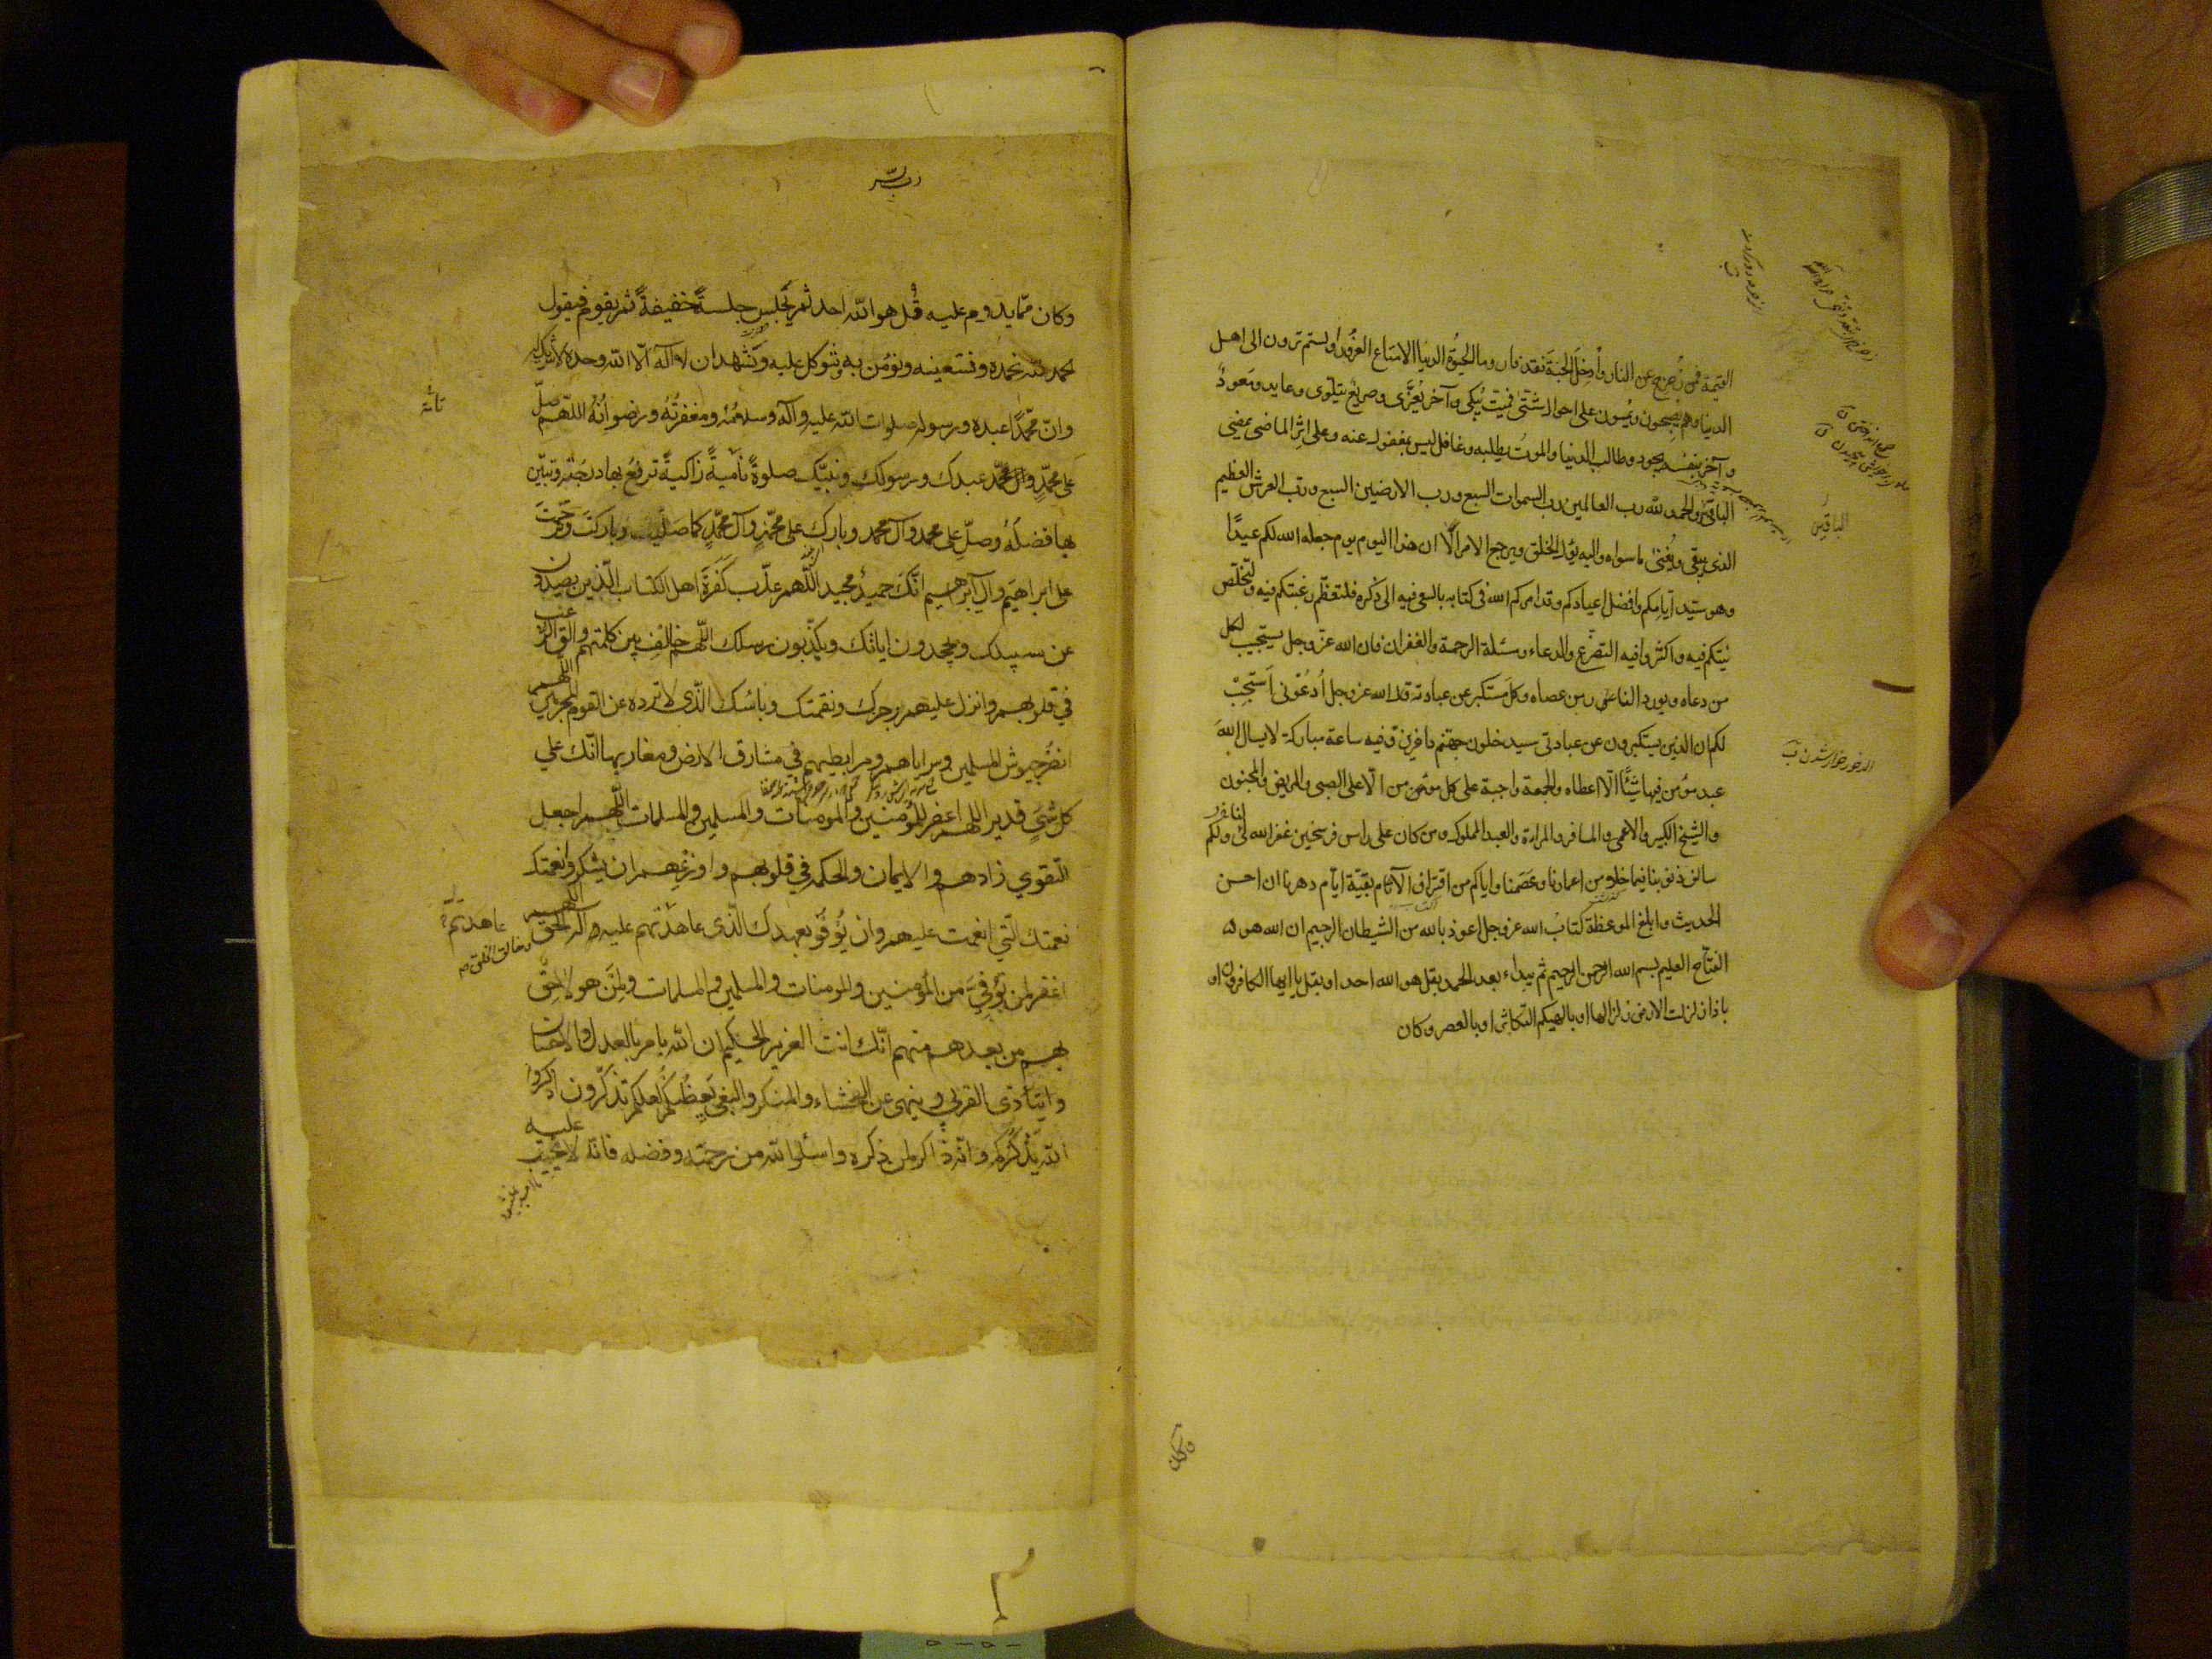 القيمة فمن زُحزح عن النار وأُدخِلَ الجنةَ فقد فاز وما الحيوة الدنيا الا متاع الغرُور اَولستم ترون الى اهل
الدنيا وهم يصبحون ويمسون على احوال شتّى فميت يُبكى وآخر يُعزّى وصريعٌ يتلوّى وعايد ومَعودٌ
وآخر بنفسه يجود وطالب الدنيا والموتُ يطلبه وغافل ليس بمغفول عنه وعلى اثر الماضى يمضى
الباقين والحمد لله رب العالمين رب السموات السبع ورب الارضين السبع ورب العرش العظيم
الذى يبقى ويُفنى ما سواه واليه يؤل الخلق ويرجع الامر اَلا ان هذا اليوم يوم جعله الله لكم عيدًا
وهو سيّد ايّامكم وافضل اعيادكم وقد امركم الله فى كتابه بالسعى فيه الى ذكره فلتعظّم رغبتكم فيه ولتخلّص
نيّتكم فيه واكثروا فيه التضرّع والدعاء ومسئلة الرحمة والغفران فان الله عزّ وجل يستجيب لكل
من دعاه ويورد النار من عصاه وكل مستكبر عن عبادته قال الله عز وجل اُدعُونى اَستَجِبْ
لكم ان الذين يستكبرون عن عبادتى سيدخلون جهنم داخرين وفيه ساعة مباركة لا يسال اللهَ
عبد مؤمن فيها شيئًا الّا اعطاه والجمعة واجبة على كل مؤمن الّا على الصبى والمريض والمجنون
والشيخ الكبير والاعمى والمسافر والمراة والعبد المملوك ومن كان على راس فرسخين غفر الله لنا ولكم
سالف ذنوبنا فيما خلا من اعمارنا وعصمنا واياكم من اقتراف الآثام بقيّة ايّام دهرنا ان احسن
الحديث وابلغ الموعظة كتابُ الله عز وجل اعوذ بالله من الشيطان الرجيم ان الله هو
الفتّاح العليم بسم الله الرحمن الرحيم ثم يبداء بعد الحمد بقل هو الله احد او بقل يا ايها الكافرون او
باذا زلزلت الارض زلزالها او بالهيكم التكاثر او بالعصر وكان
الباقين
وكان
رب يسر
وكان ممّا يدوم عليه قُل هو الله احد ثم يجلس جلسةً خفيفةً ثم يقوم فيقول
الحمد لله نحمده ونستعينه ونؤمن به ونتوكل عليه ونَشهد ان لا اله الّا الله وحده لا شريك له
وانّ محمّدًا عبده ورسوله صلوات الله عليه وآله وسلامُه ومغفرتُهُ ورضوانُهُ اللّهم صلّ
على محمّدٍ وآل محمّد عبدك ورسولك ونبيّك صلوةً نامِيةً زاكيةً ترفعُ بها درجته وتبيّن
بها فضلَهُ وصلّ على محمد وآل محمد وبارك على محمّدٍ وآل محمّدٍ كما صليت وباركتَ وترحّمتَ
على ابراهيم وآل ابرهيم انّك حميدٌ مجيد اللّهم عذّب كفَرَةَ اهل الكتاب الّذين يصدّون
عن سبيلك ويجحدون اياتك ويكذّبون رسلك اللّهم خالف بين كلمتهم والق الرّعب
فى قلوبهم وانزل عليهم رجزك ونقمتك وباسك الّذى لا تردّه عن القوم المجرمين اللّهم
انصر جيوش المسلمين وسراياهم ومرابطيهم فى مشارق الارض ومغاربها انّك على
كل شئ قدير اللهم اغفر للمؤمنين والمومنات والمسلمين والمسلمات اللّهم اجعل
التقوي زادهم والايمان والحكمة في قلوبهم واوزعهم ان يشكروا نعمتك
نعمتك التّي انعمت عليهم وان يُوفُوّ بعهدك الّذى عاهدتهم عليه اله الحق اللّهم
اغفر لمن تُوُفِّيَ من المؤمنين والمومنات والمسلمين والمسلمات ولمَن هو لاحِقٌ
بهم من بعدهم منهم انّك انت العزيز الحكيم ان الله يامر بالعدل والاحسان
وايتاءذى القربى وينهى عن الفحشاء والمنكر والبغى يَعِظُكُمْ لعلكم تذكّرون اذكروا
الله يذكُركم وانّه ذاكر لمن ذكره واسئلوا الله من رحمته وفضله فانّه لا يخيّب عليه
عاهدتهم
وخالق الخلق